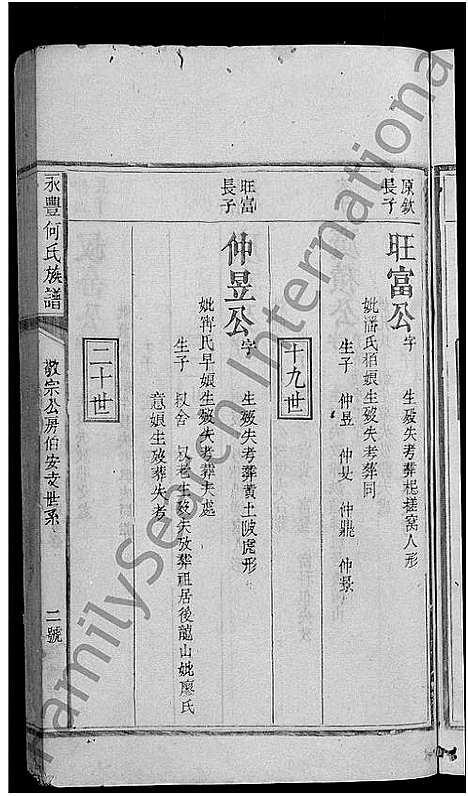 原欽
長子
旺富公
字　生歿失考葬杞槎窩人形
妣潘氏栢娘生歿失考葬同
生子　仲昱　仲旻　仲鼎　仲景
十九世
旺富
長子
仲昱公
字　生歿失考葬黄土陂虎形
妣甯氏早娘生歿失考葬夫處
生子　以舍　以老生歿失攷葬祖居後龍山妣廖氏
意娘生歿葬失考
二十世
永豐何氏族譜
敬宗公房伯安支世系
二號
FamilySearch International